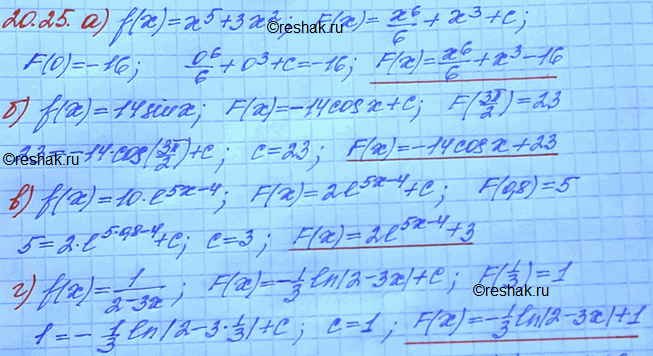 20.25. а) f(x)=x⁵+3x²; F(x)=x⁶/6+x³+c;
F(0)=-16; 0⁶/6+0³+c=-16; F(x)=x⁶/6+x³-16
б) f(x)=14sinx; F(x)=-14cosx+c; F(3π/2)=23
23=-14·cos(3π/2)+c; c=23; F(x)=-14cosx+23
в) f(x)=10·e^(5x-4); F(x)=2e^(5x-4)+c; F(0,8)=5
5=2·e^(5·0,8-4)+c; c=3; F(x)=2e^(5x-4)+3
г) f(x)=1/(2-3x); F(x)=-1/3 ln|2-3x|+c; F(1/3)=1
1=-1/3 ln|2-3·1/3|+c; c=1; F(x)=-1/3 ln|2-3x|+1